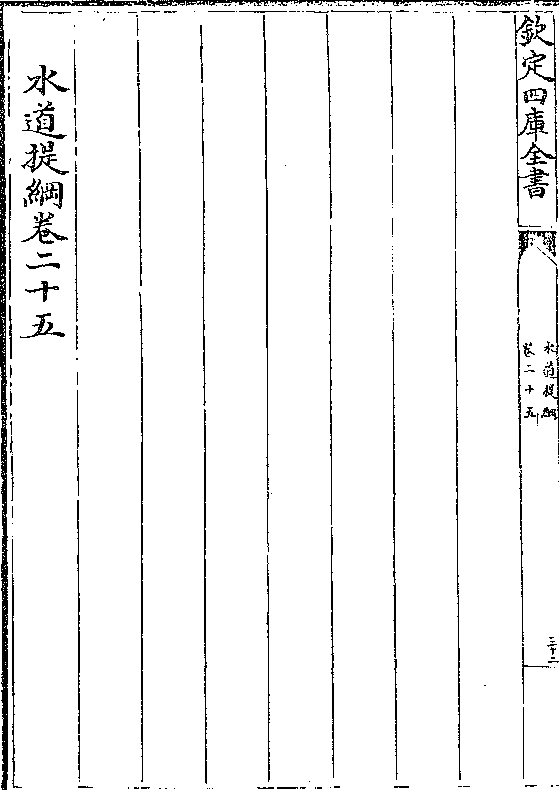 欽定四庫全書
水道提綱
卷二十五
三十二
水道提綱卷二十五